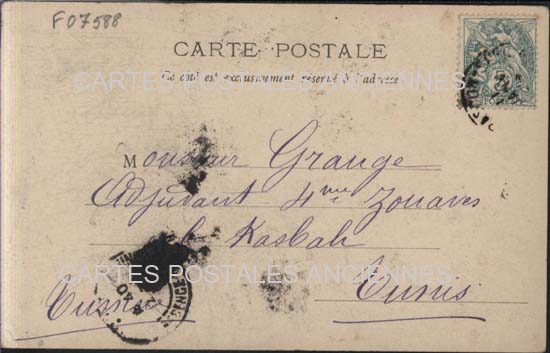 F07588
CARTE POSTALE
Ce côté est exclusivement réservé à l'adresse
CARTES POSTALES ANCIENNES
Monsieur Grange
Adjudant 4me Zouaves
la Kasbah
CARTES POSTALES ANCIENNES
Tunis
Tunisie